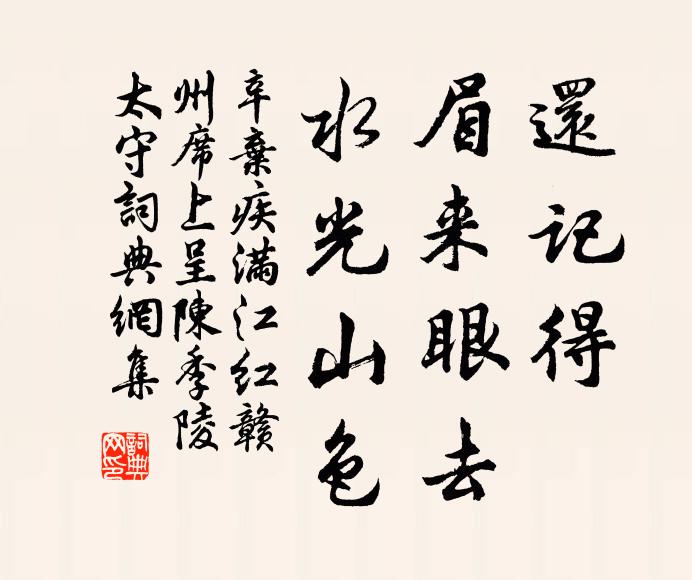 還記得
眉来眼去
水光山色
辛棄疾满江红赣
州席上呈陳季陵
太守詞典網集
詞典
网印